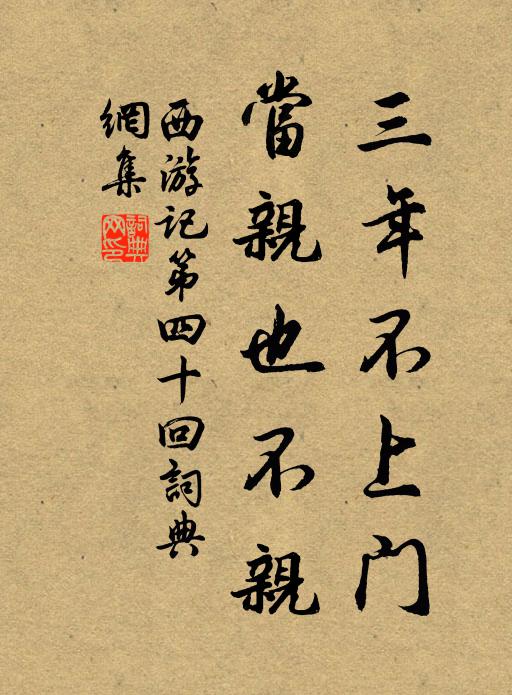 三年不上門
當親也不親
西游記第四十回詞典
網集
詞典
网印